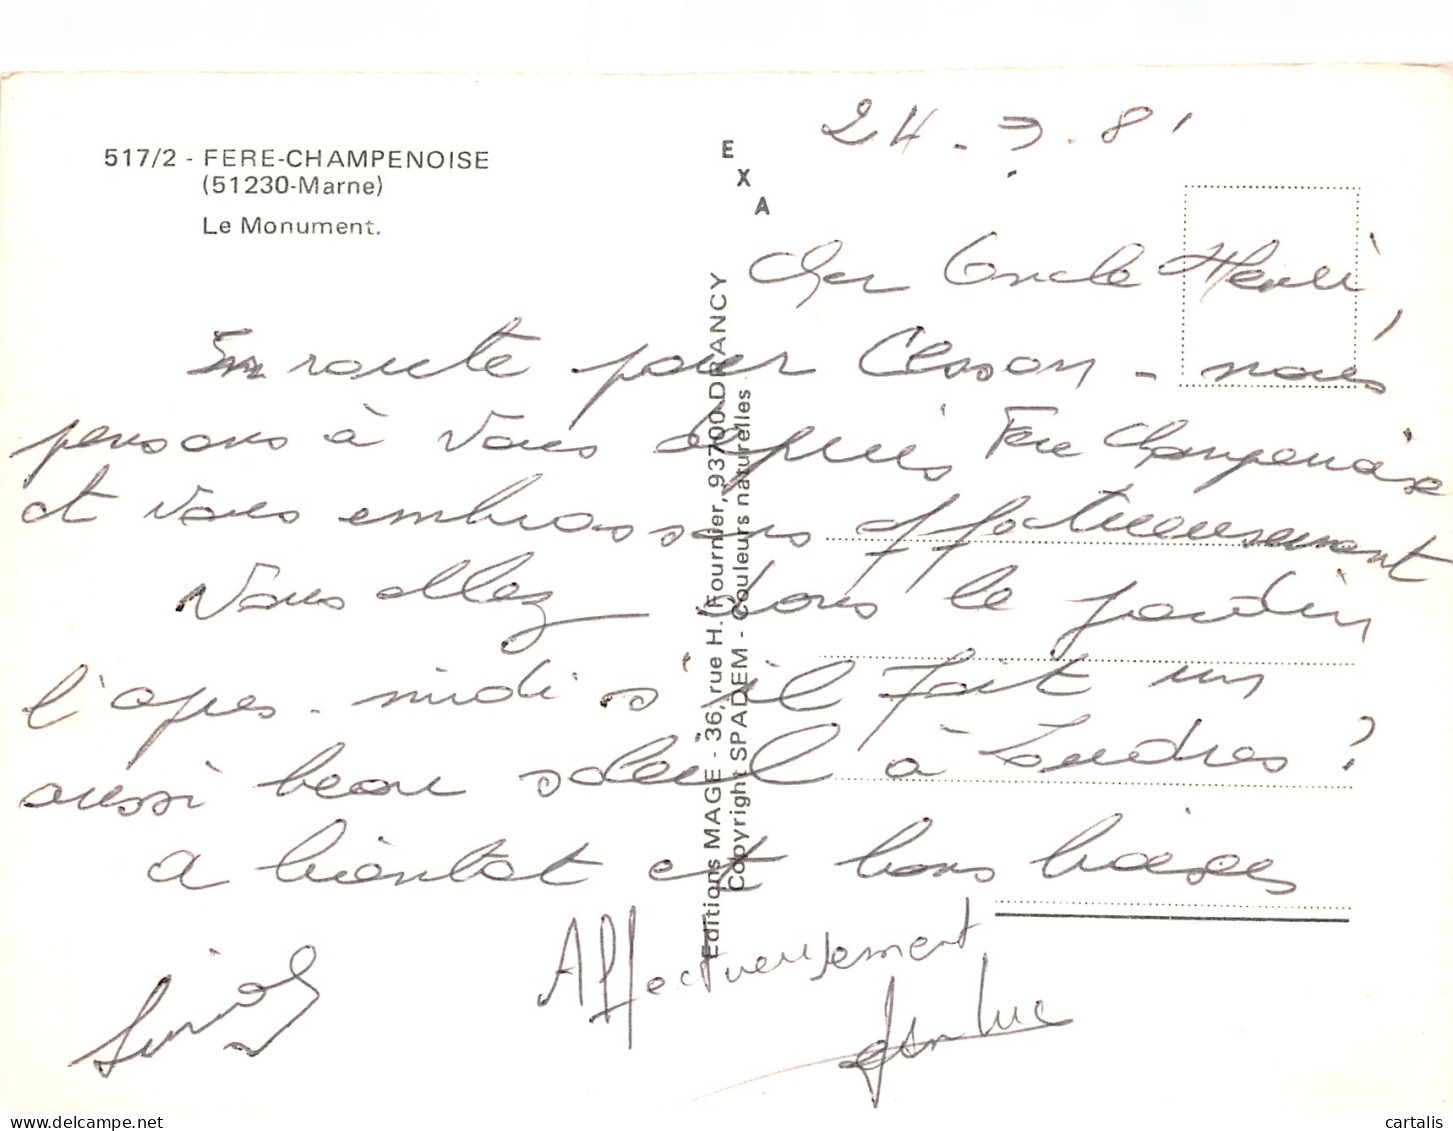 517/2 - FERE-CHAMPENOISE
(51230-Marne)
Le Monument.
E
X
A
Editions MAGE - 36, rue H. Fournier, 93700 DRANCY
Copyright SPADEM - Couleurs naturelles
24. 3. 81
Cher Oncle Henri,
En route pour Cesson - nous
pensons à vous depuis Fere Champenoise
et vous embrassons affectueusement
Vous allez dans le jardin
l'apres-midi s'il fait un
aussi beau soleil à Londres ?
A bientot et bons baises
Affectueusement
Jean Luc
cartalis